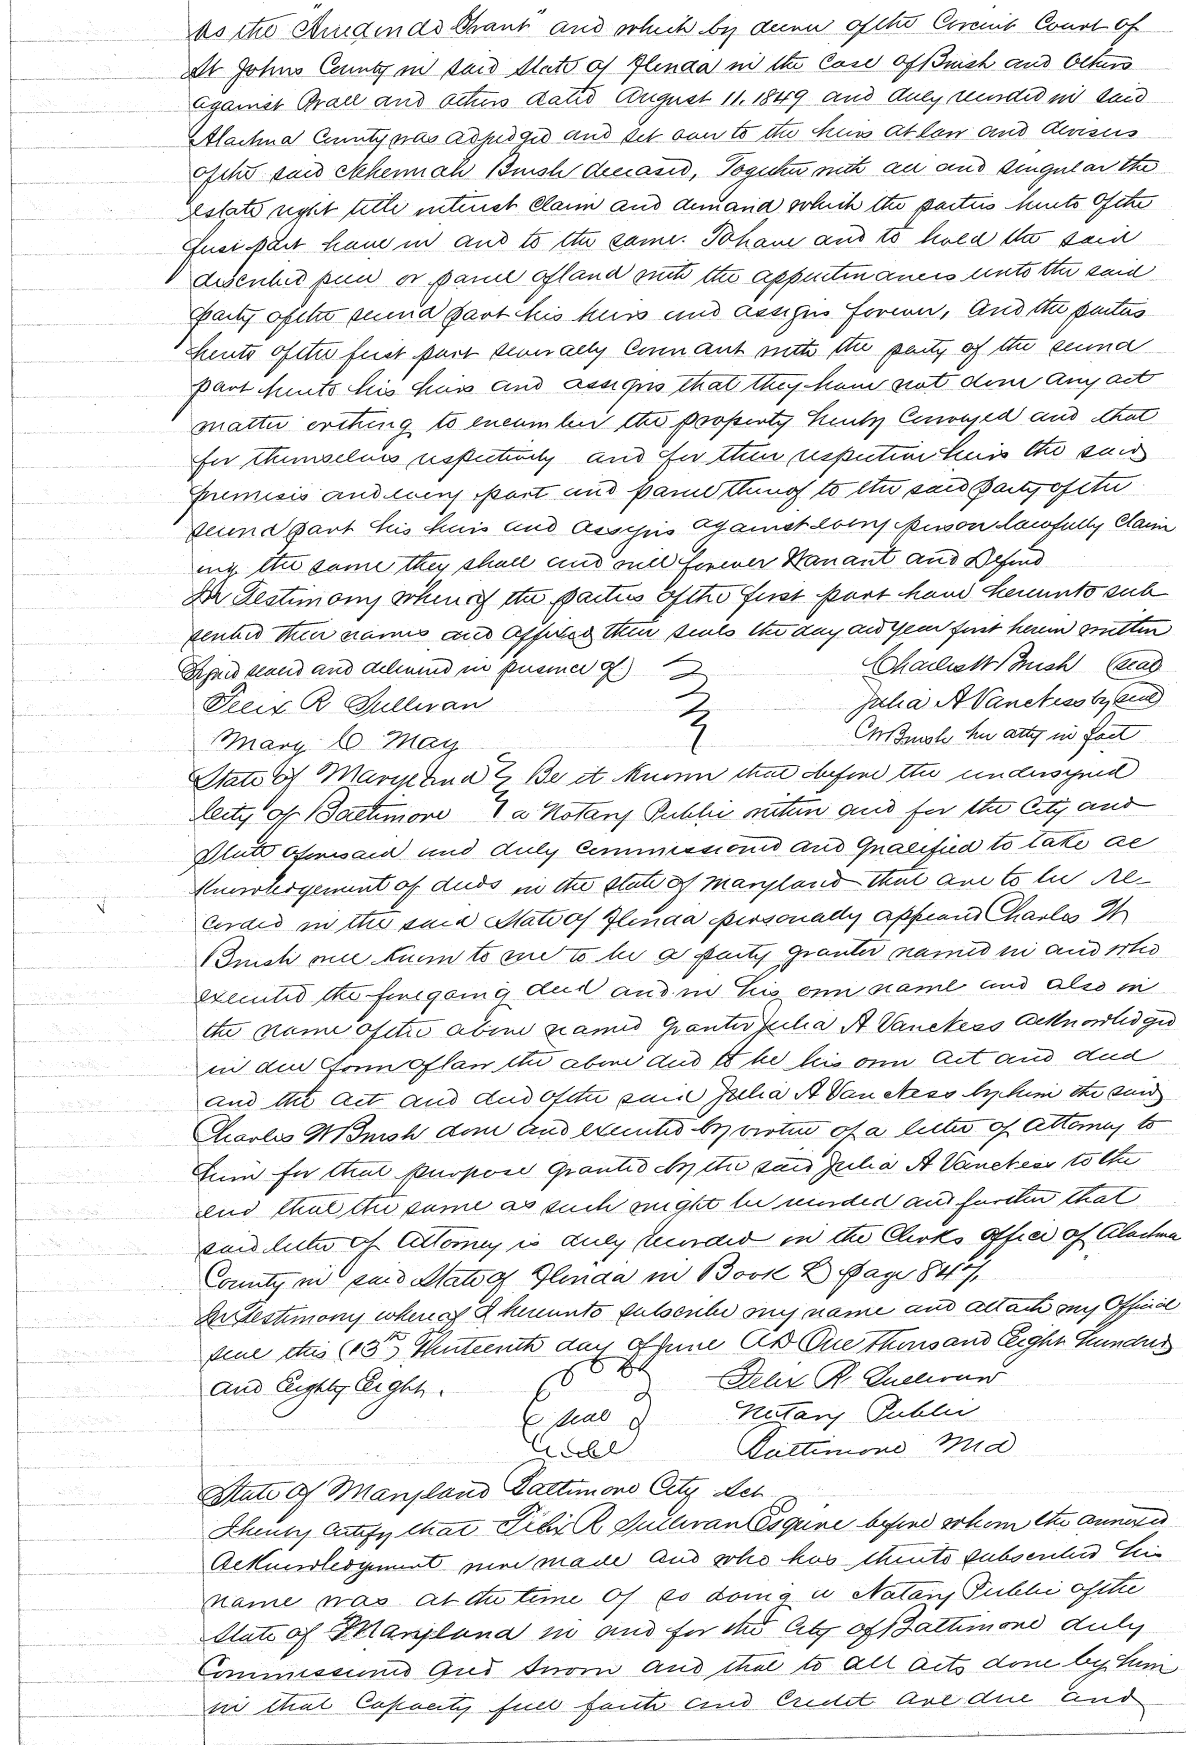 as the "Arredondo Grant" and which by decree of the Circuit Court of
St Johns County in said State of Florida in the Case of Brush and Others
against Prall and others dated August 11. 1849 and duly recorded in said
Alachua County was adjudged and set over to the heirs at law and devisees
of the said Nehemiah Brush deceased, Together with all and singular the
estate right title interest claim and demand which the parties hereto of the
first part have in and to the same. To have and to hold the said
described piece or parcel of land with the appurtenances unto the said
party of the second part his heirs and assigns forever, And the parties
hereto of the first part severally covenant with the party of the second
part hereto his heirs and assigns that they have not done any act
matter or thing to encumber the property hereby conveyed and that
for themselves respectively and for their respective heirs the said
premises and every part and parcel thereof to the said party of the
second part his heirs and assigns against every person lawfully claim
ing the same they shall and will forever Warrant and Defend
In Testimony whereof the parties of the first part have hereunto sub
scribed their names and affixed their seals the day and year first herein written
Signed sealed and delivered in presence of Charles W Brush (seal
Felix R Sullivan Julia A VanNess by (seal)
Mary C May CW Brush her atty in fact
State of Maryland } Be it known that before the undersigned
City of Baltimore } a Notary Public within and for the City and
State aforesaid and duly commissioned and qualified to take ac
knowledgement of deeds in the state of Maryland that are to be re-
corded in the said State of Florida personally appeared Charles W
Brush well known to me to be a party grantor named in and who
executed the foregoing deed and in his own name and also in
the name of the above named grantor Julia A VanNess acknowledged
in due form of law the above deed to be his own act and deed
and the act and deed of the said Julia A Van Ness by him the said
Charles W Brush done and executed by virtue of a letter of attorney to
him for that purpose granted by the said Julia A VanNess to the
end that the same as such might be recorded and further that
said letter of Attorney is duly recorded in the Clerks office of Alachua
County in said State of Florida in Book D page 847.
In Testimony whereof I hereunto subscribe my name and attach my Official
seal this (13th) thirteenth day of June AD One thousand Eight hundred
and Eighty Eight. Felix R. Sullivan
(seal) Notary Public
Baltimore Md
State of Maryland Baltimore City Sct
I hereby certify that Felix R Sullivan Esquire before whom the annexed
Acknowledgment were made and who has thereto subscribed his
name was at the time of so doing a Notary Public of the
State of Maryland in and for the City of Baltimore duly
Commissioned and sworn and that to all acts done by him
in that Capacity full faith and Credit are due and